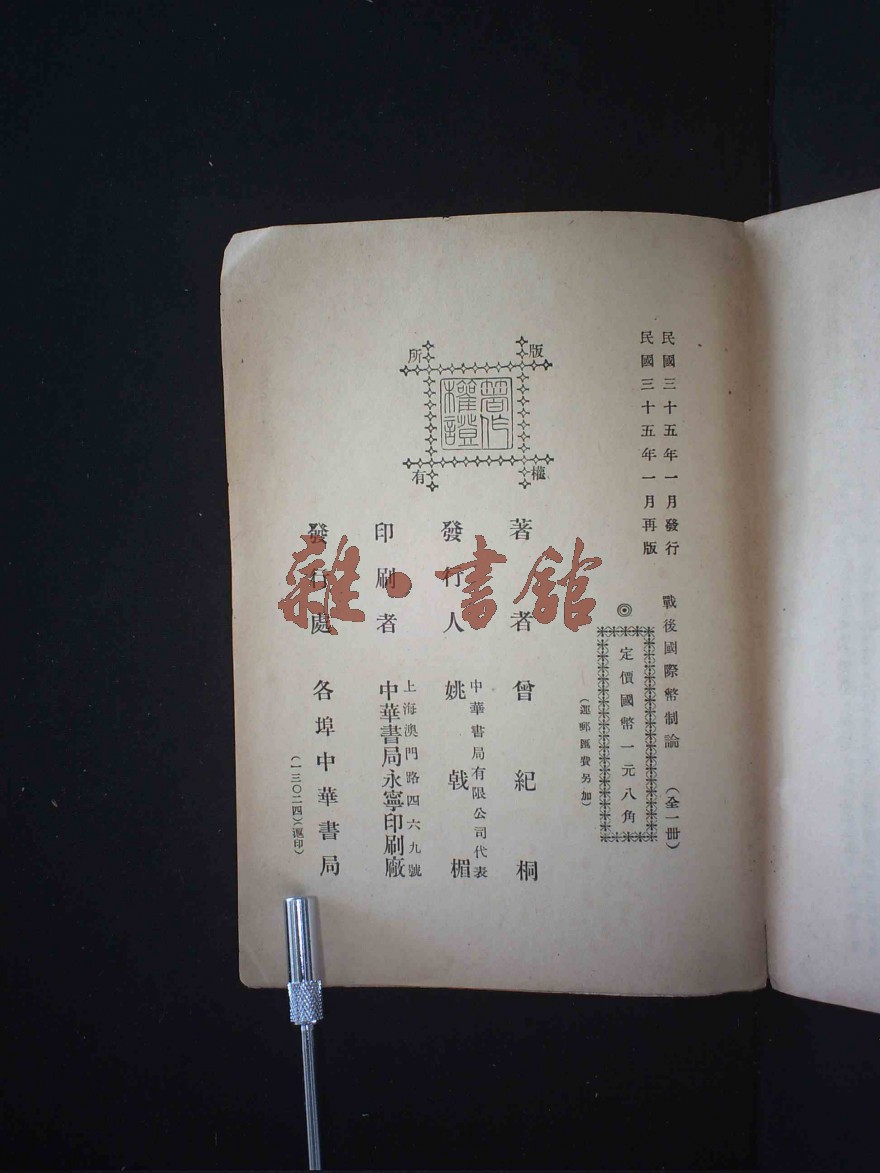 民國三十五年一月發行
民國三十五年一月再版
戰後國際幣制論（全一冊）
◎定價國幣一元八角
（運郵匯費另加）
版權所有
著作權證
著者 曾紀桐
發行人 中華書局有限公司代表 姚戟楣
印刷者 上海澳門路四六九號 中華書局永寧印刷廠
發行處 各埠中華書局
（一三〇二四）（滬印）
雜·書館